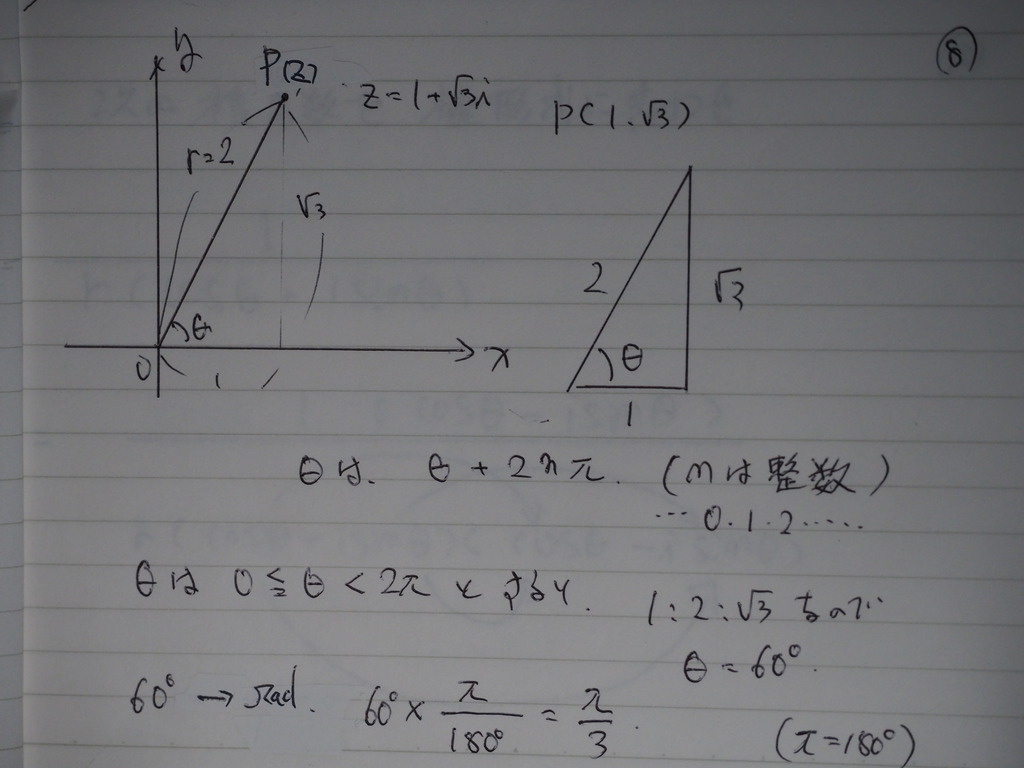 ⑧
y
P(z)
z = 1 + √3i
P(1.√3)
r=2
√3
θ
0
x
1
2
√3
θ
1
θは. θ + 2nπ. (nは整数)
… 0.1.2……
θは 0 ≦ θ < 2π とすると.
1:2:√3 なので
θ = 60°.
60° → rad. 60° × π/180° = π/3.
(π=180°)